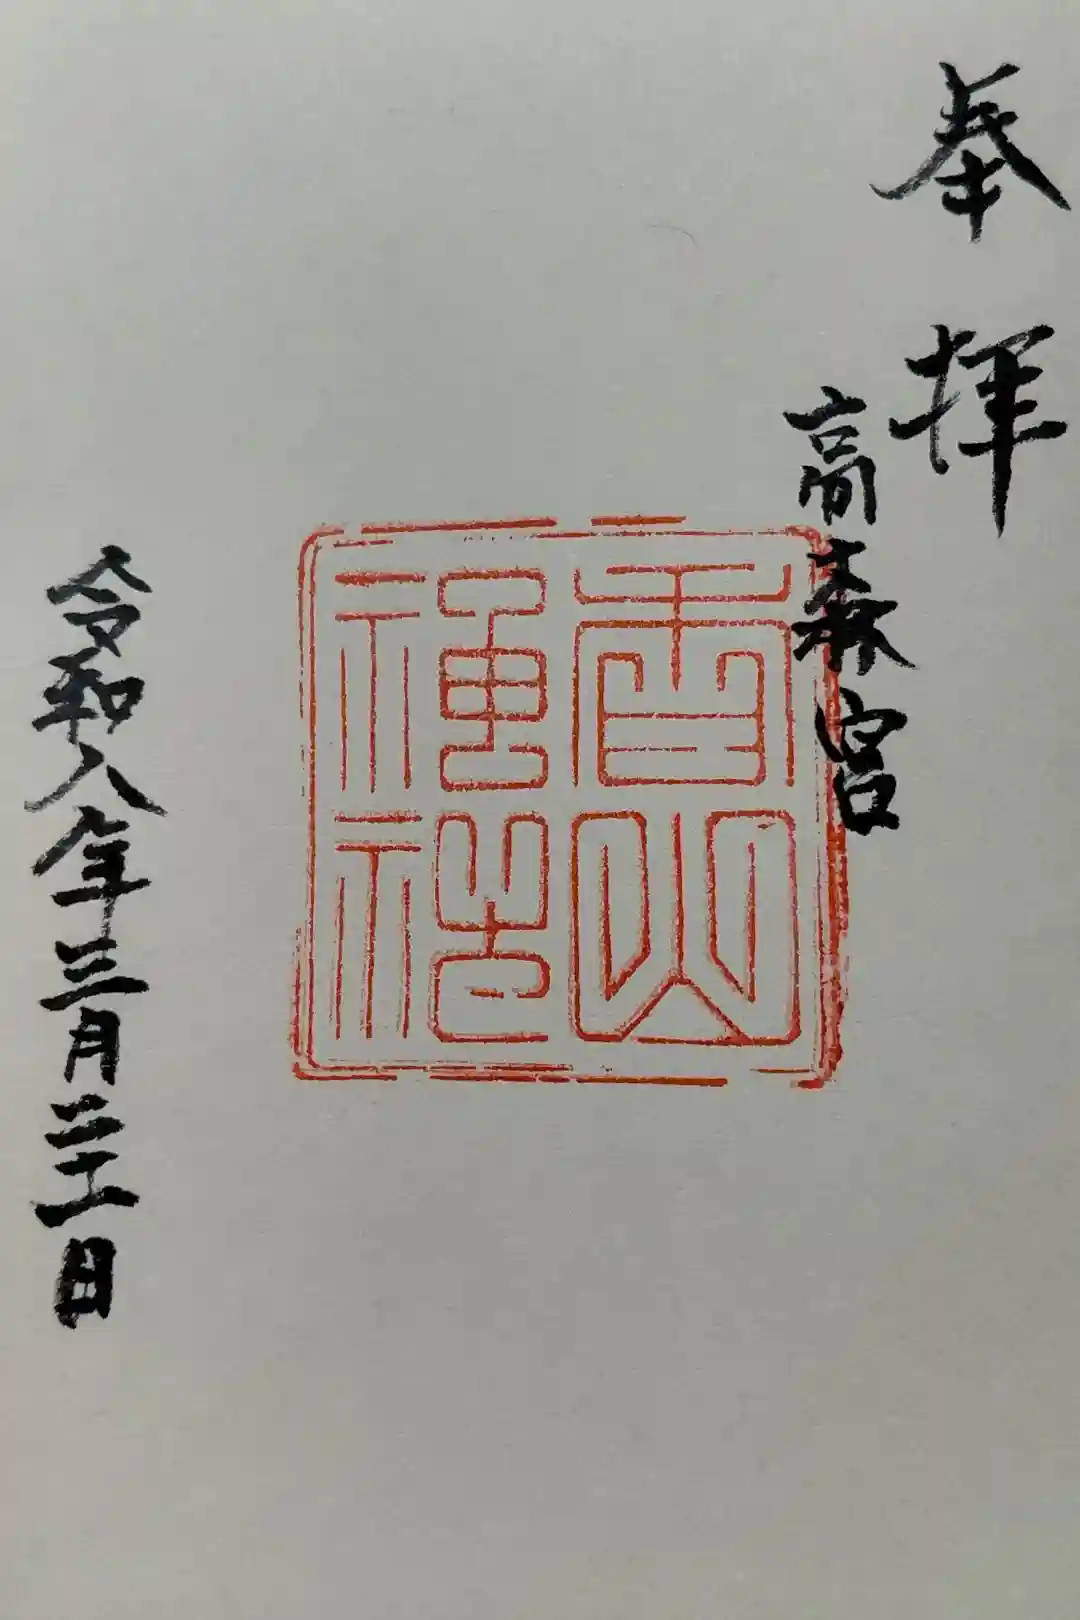 奉拝
高森宮
神社
令和八年三月二十一日